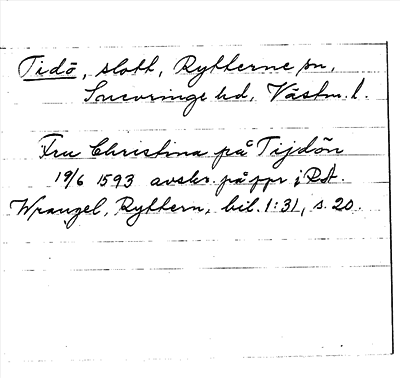 Tidö, slott, Rytterne sn,
Snevringe hd, Västm. l.
Fru Christina på Tijdön
19/6 1593 avskr. på ppr i RA.
Wrangel, Ryttern, bil. 1:31, s. 20.